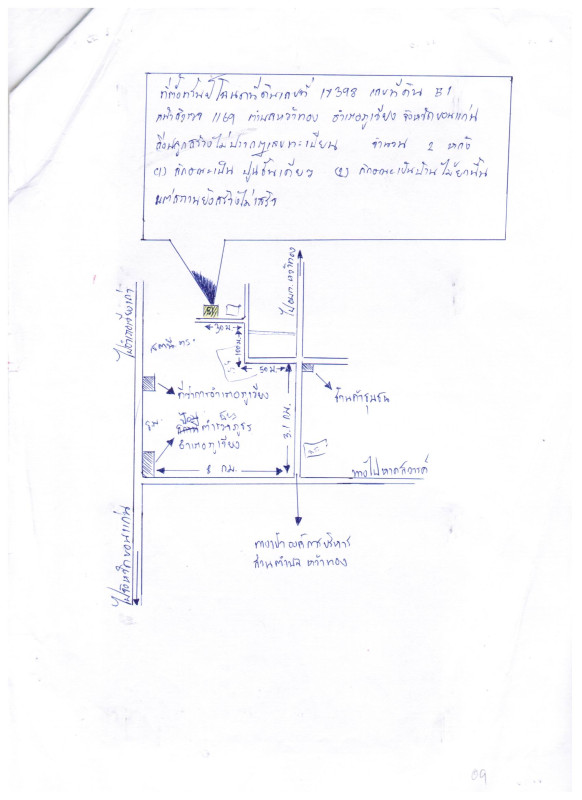 ที่ตั้งทรัพย์ โฉนดที่ดินเลขที่ 17398 เลขที่ดิน 51
หน้าสำรวจ 1169 ตำบลหว้าทอง อำเภอภูเวียง จังหวัดขอนแก่น
สิ่งปลูกสร้างไม่ปรากฏเลขทะเบียน จำนวน 2 หลัง
(1) ลักษณะเป็น ปูนชั้นเดียว (2) ลักษณะเป็นบ้านไม้ยกพื้น
แต่สถานยังสร้างไม่เสร็จ
ไป อบต. หว้าทอง
51
30 ม.
100 ม.
50 ม.
ร้านค้าชุมชน
ที่ว่าการอำเภอภูเวียง
3.1 กม.
ตำรวจภูธร
อำเภอภูเวียง
8 กม.
ทางไปหาดสวรรค์
ไปจังหวัดขอนแก่น
ทางเข้าองค์การบริหาร
ส่วนตำบล หว้าทอง
09